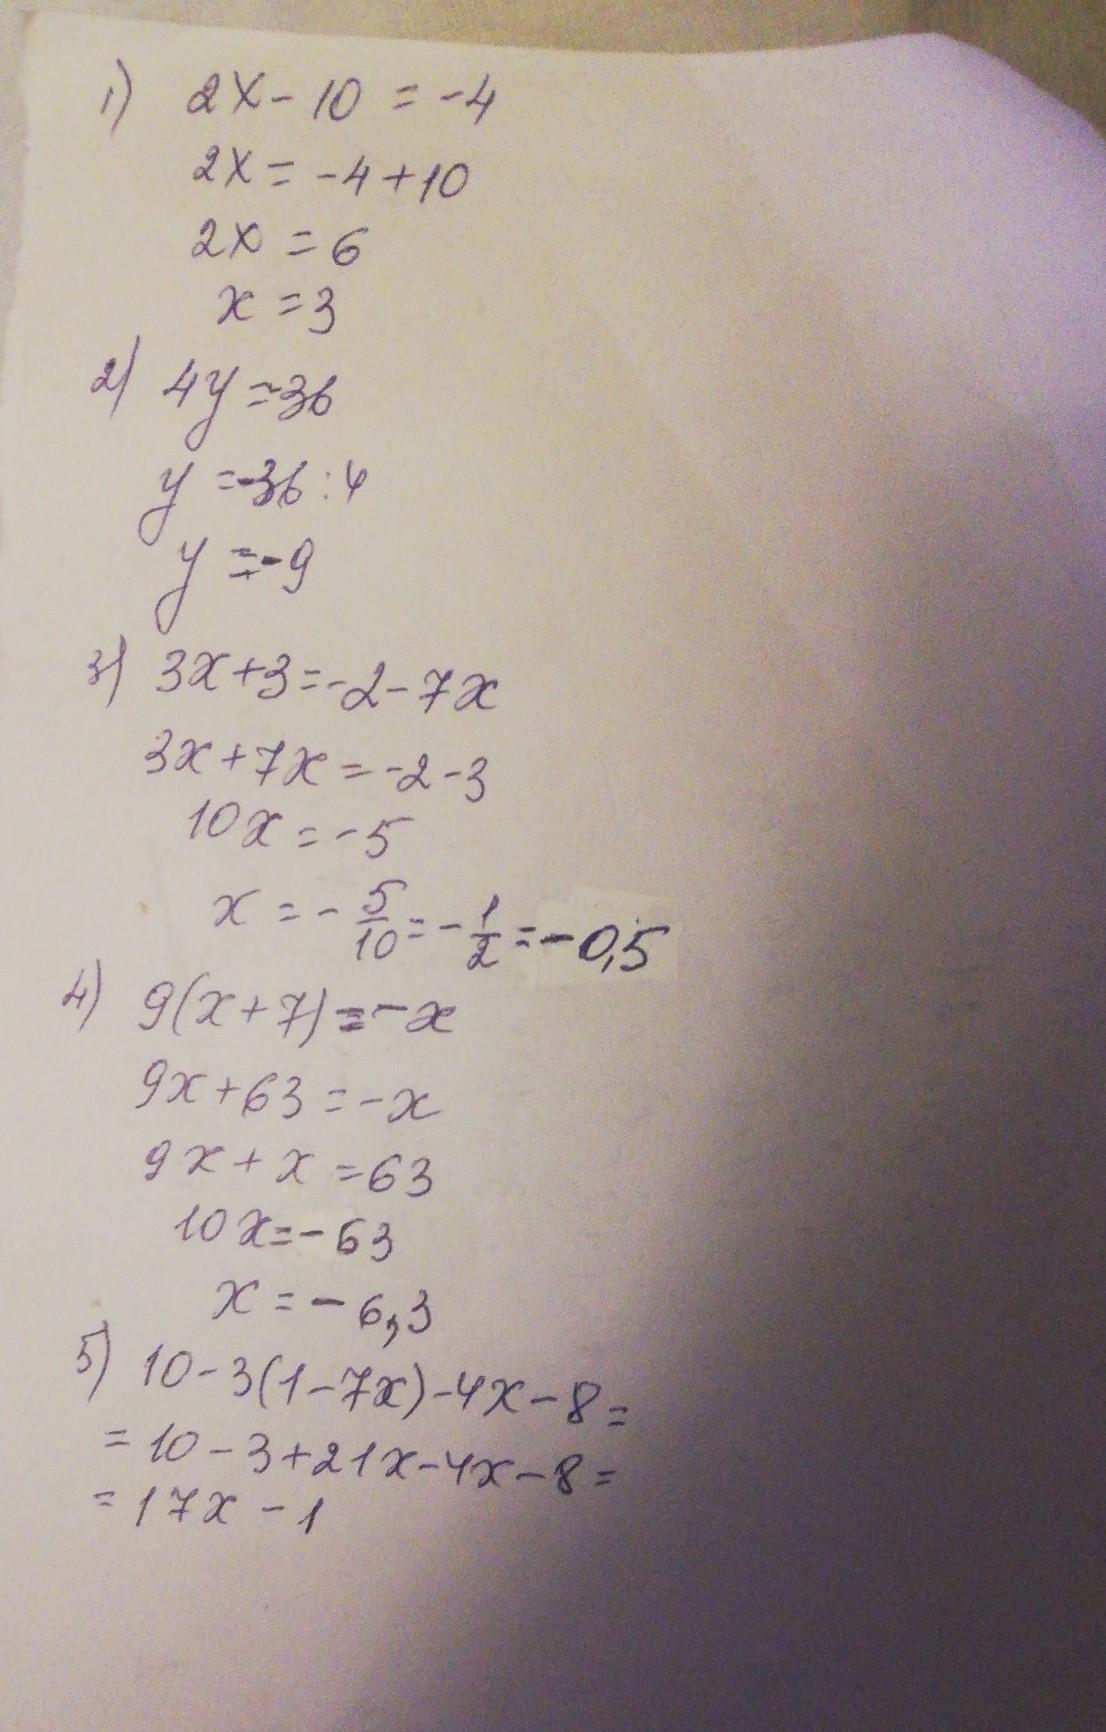 1) 2x - 10 = -4
2x = -4 + 10
2x = 6
x = 3
2) 4y = -36
y = -36 : 4
y = -9
3) 3x + 3 = -2 - 7x
3x + 7x = -2 - 3
10x = -5
x = - 5/10 = - 1/2 = -0,5
4) 9(x + 7) = -x
9x + 63 = -x
9x + x = 63
10x = -63
x = -6,3
5) 10 - 3(1 - 7x) - 4x - 8 =
= 10 - 3 + 21x - 4x - 8 =
= 17x - 1